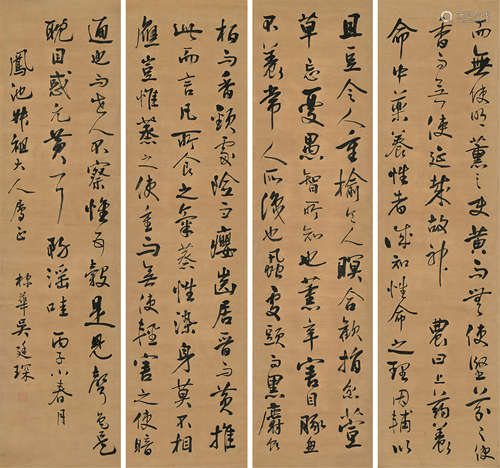 而無使明薰之使黃而無使堅芬之使
香而無使延哉故神農曰上藥養
命中藥養性者誠知性命之理因輔以
且豆令人重榆令人瞑合歡捐忿萱
草忘憂愚智所知也薰辛害目豚魚
不養常人所識也虱處頭而黑麝食
柏而香頸處險而癭齒居晉而黃推
此而言凡所食之氣蒸性染身莫不相
應豈惟蒸之使重而無使輕害之使暗
通也而世人不察惟五穀是見聲色是
耽目惑元黃耳務淫哇 丙子小春月
鳳池叔祖大人屬正 棣華吳廷琛